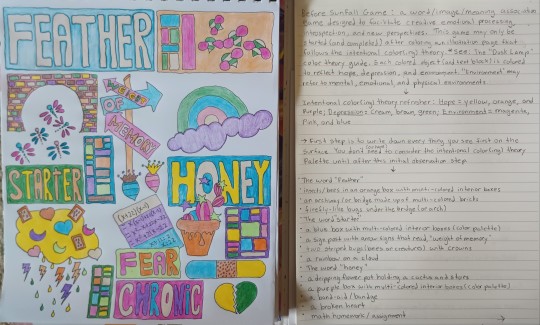 FEATHER
WEIGHT
OF
MEMORY
STARTER
HONEY
FEAR
CHRONIC
Before Sunfall Game: a word/image/meaning association
game designed to facilitate creative emotional processing,
introspection, and new perspectives. This game may only be
started (and completed) after coloring a
page that
follows the intentional coloring theory. *See: The "Dusk Lamp"
color theory guide. Each colored object (and text block) is colored
to reflect hope, depression, and environment. "Environment" may
refer to mental, emotional, and physical environments.
Intentional coloring theory refresher: Hope = yellow, orange, and
Purple; Depression = Cream, brown, green; Environment = magenta,
Pink, and blue
→ First step is to write down every thing you see first on the
surface. You don't need to consider the intentional (coloring) theory
Palette until after this initial observation step
The word "Feather"
insects/bees in an orange box with multi-colored interior boxes
an archway/or bridge made up of multi-colored bricks
firefly-like bugs under the bridge (or arch)
The word starter
a blue box with multi-colored interior boxes (color palette)
a sign post with arrow signs that read, "weight of memory."
two striped bugs (bees or creatures) with crowns
a rainbow on a cloud
The word "honey"
a dripping flower pot holding a cactus and stars
a purple box with multi-colored interior boxes (color palette)
a band-aid/bandage
a broken heart
math homework/assignment